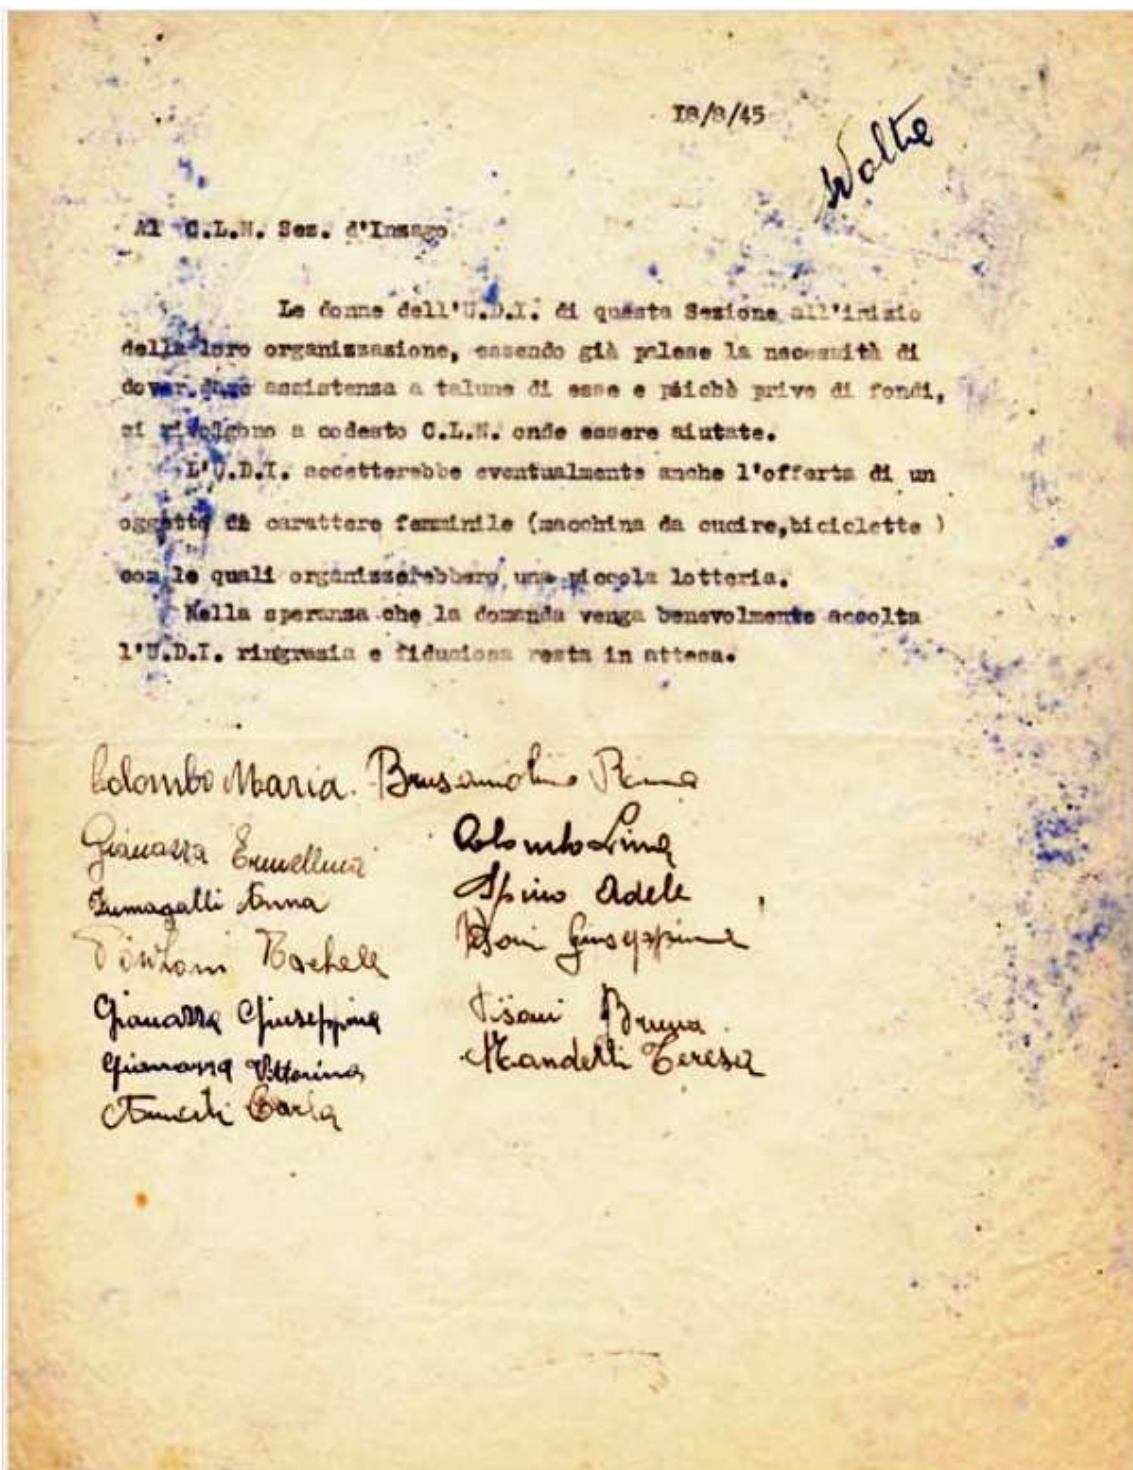 18/8/45
Al C.L.N. Sez. d'Inzago
Le donne dell'U.D.I. di questa Sezione all'inizio
della loro organizzazione, essendo già palese la necessità di
dover dare assistenza a talune di esse e poichè prive di fondi,
si rivolgono a codesto C.L.N. onde essere aiutate.
L'U.D.I. accetterebbe eventualmente anche l'offerta di un
oggetto di carattere femminile (macchina da cucire,biciclette )
con le quali organizzerebbero una piccola lotteria.
Nella speranza che la domanda venga benevolmente accolta
l'U.D.I. ringrazia e fiduciosa resta in attesa.
Colombo Maria. Brusamolino Pina
Gianazza Ermellina Colombo Lina
Fumagalli Anna Spino Adele
Rachele Giuseppina
Gianazza Giuseppina Pisani Bruna
Gianazza Vittorina Mandelli Teresa
Carla